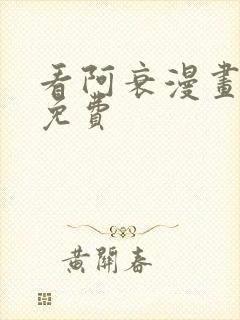 看阿衰漫畫
免費
黄開春